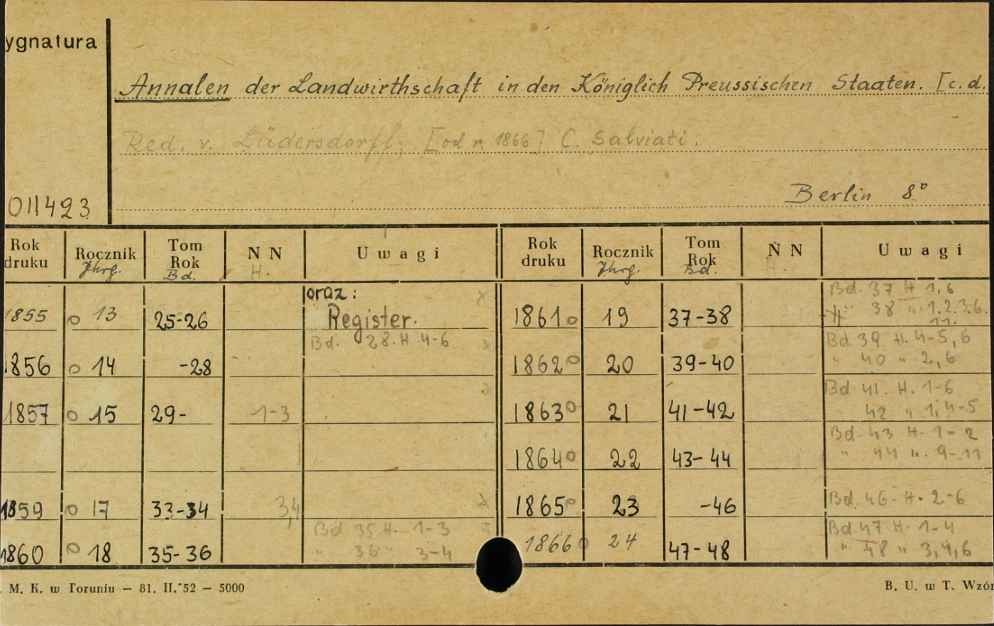 ygnatura
Annalen der Landwirthschaft in den Königlich Preussischen Staaten. [c.d.
Red. v. Lüdersdorff; [od r. 1866] C. Salviati.
Berlin 8°
011423
Rok druku Rocznik Jhrg. Tom Rok Bd. N N H. Uwagi Rok druku Rocznik Jhrg. Tom Rok Bd. N N Uwagi
1855 o 13 25-26 oraz: Register. 1861 o 19 37-38 Bd. 37 H 1,6
" 38 " 1.2.3.6.
11.
1856 o 14 -28 Bd. 28. H. 4-6 1862 o 20 39-40 Bd 39 H. 4-5, 6
" 40 " 2,6
1857 o 15 29- 1-3 1863 o 21 41-42 Bd 41. H. 1-6
42 " 1, 4-5
1864 o 22 43-44 Bd. 43 H. 1-2
" 44 ". 9-11
1859 o 17 33-34 34 1865 o 23 -46 Bd. 46. H. 2-6
1860 o 18 35-36 Bd 35 H. 1-3 1866 o 24 47-48 Bd 47 H. 1-4
" 36 " 3-4 " 48 " 3,4,6
. M. K. w Toruniu — 81. II.'52 — 5000
B. U. w T. Wzór